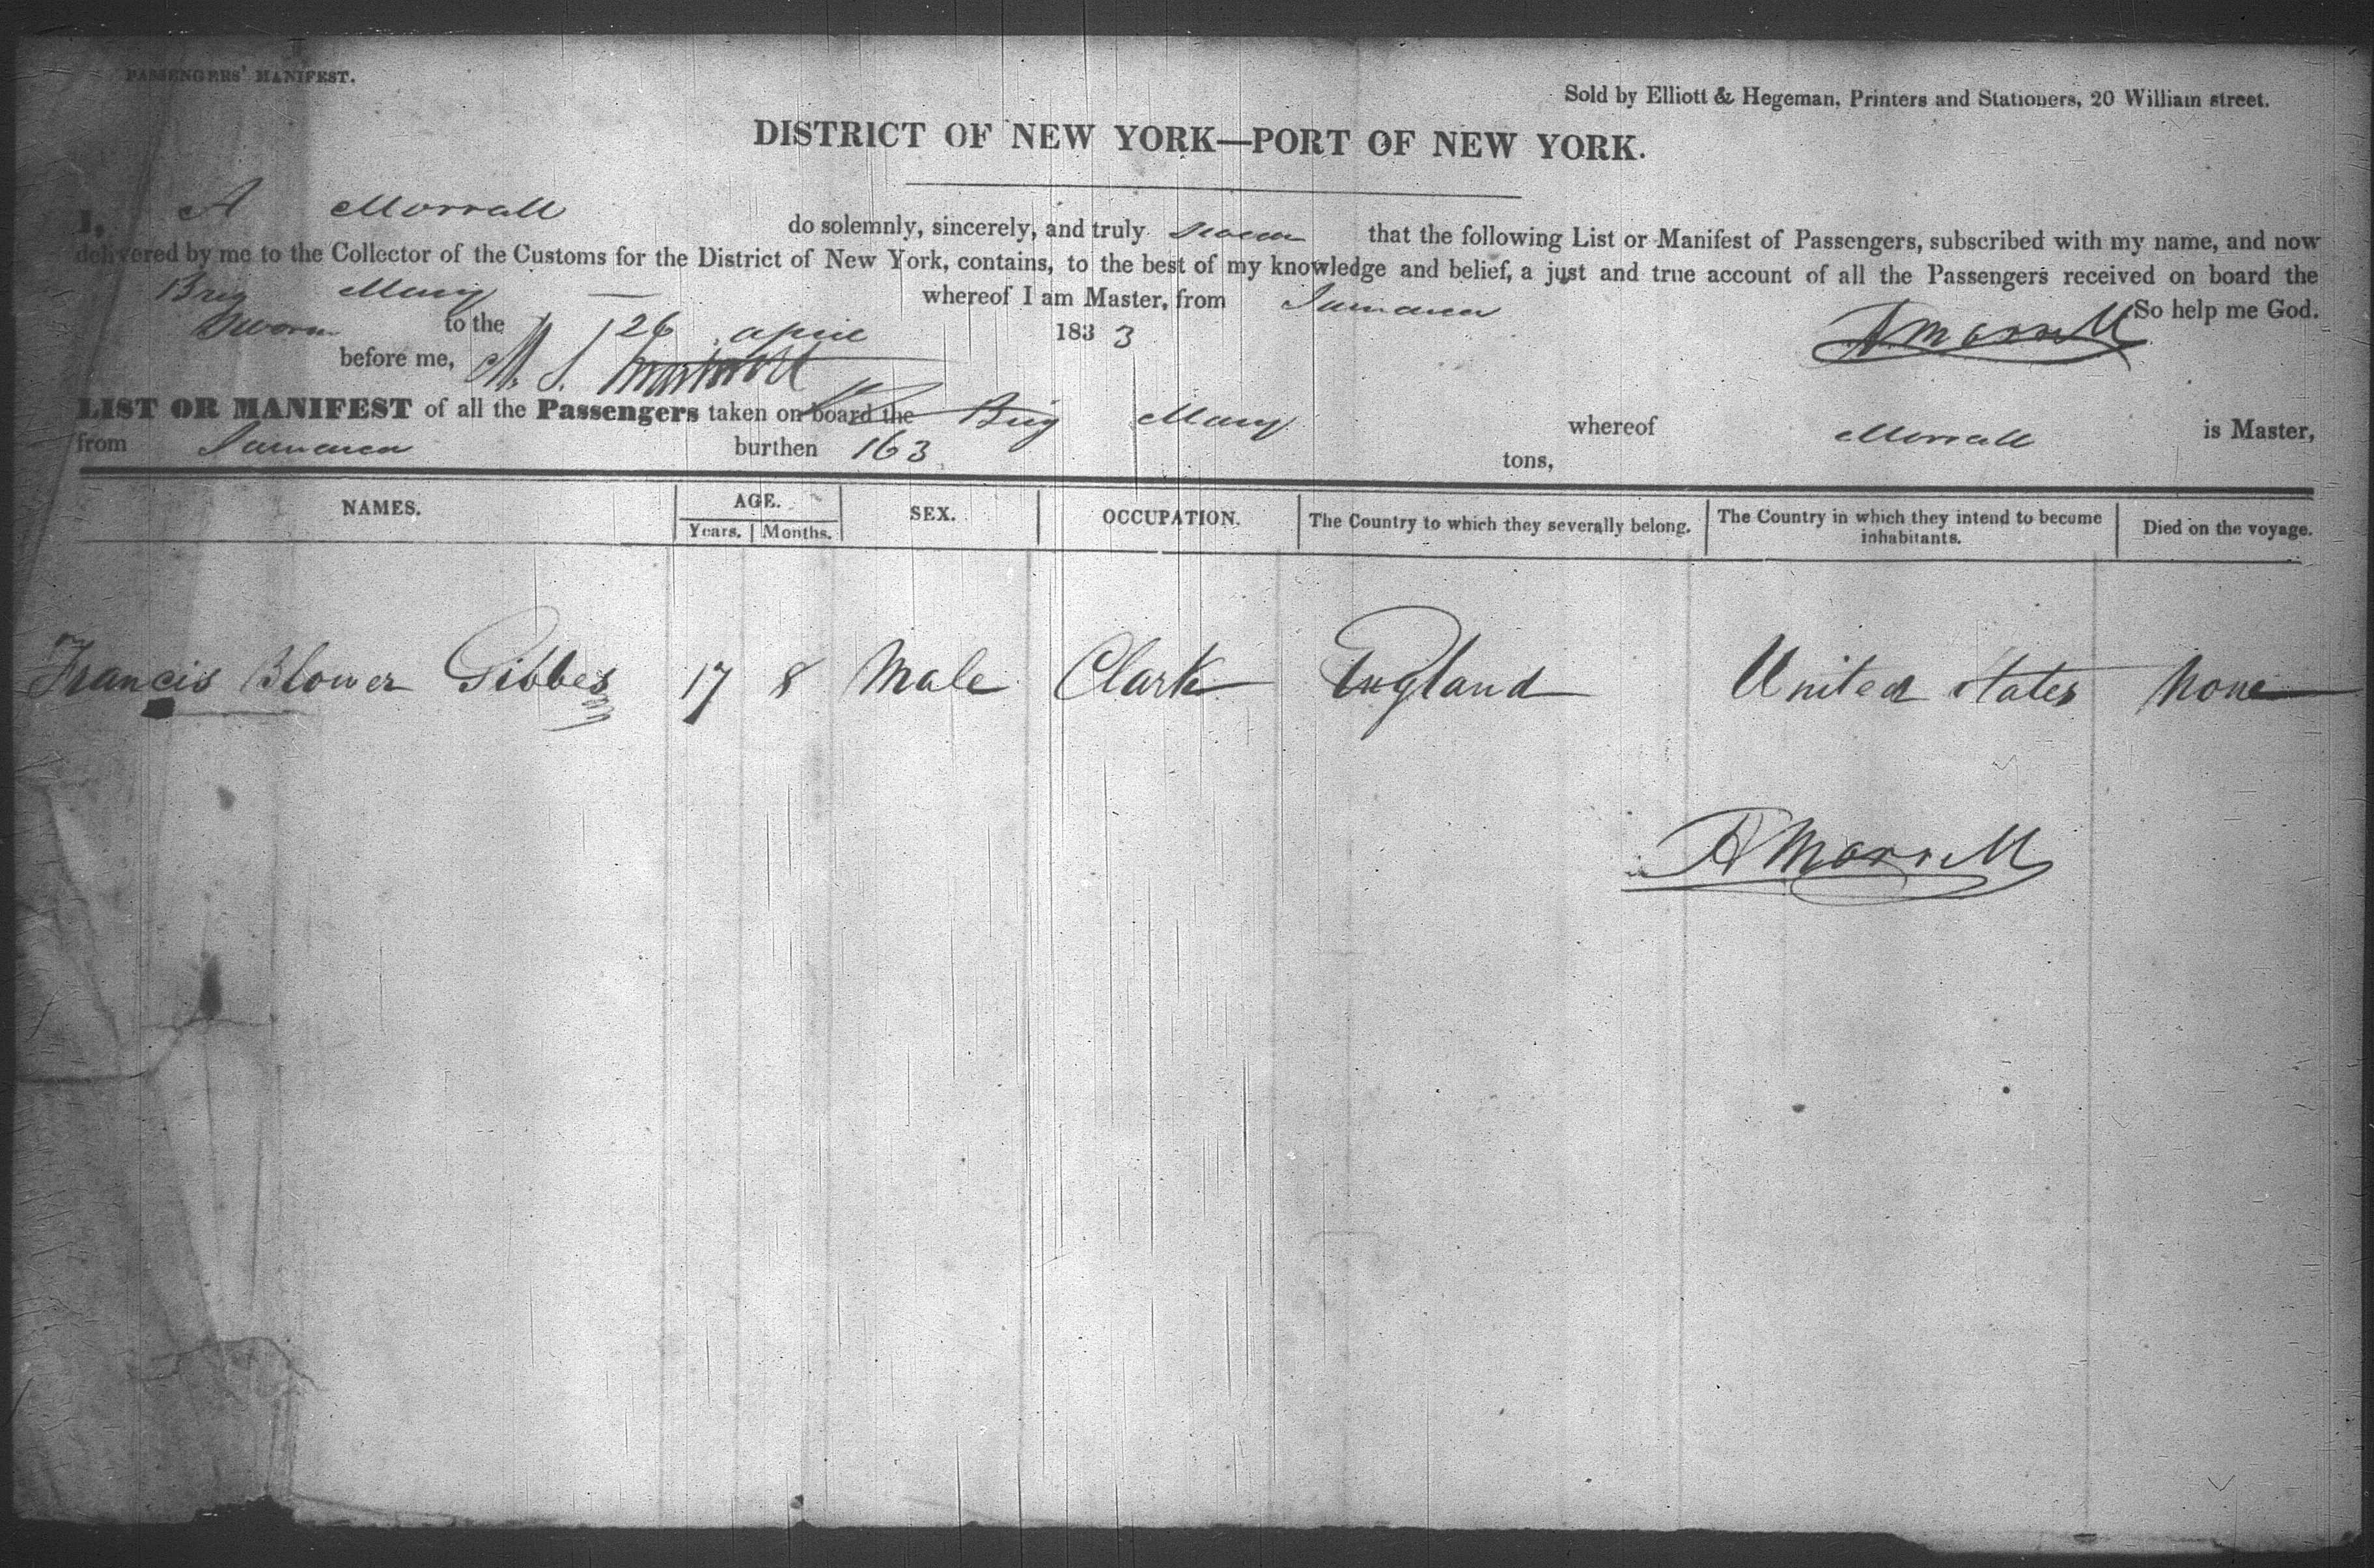 PASSENGERS' MANIFEST.
Sold by Elliott & Hegeman, Printers and Stationers, 20 William street.
DISTRICT OF NEW YORK—PORT OF NEW YORK.
I, A Morrall do solemnly, sincerely, and truly swear that the following List or Manifest of Passengers, subscribed with my name, and now
delivered by me to the Collector of the Customs for the District of New York, contains, to the best of my knowledge and belief, a just and true account of all the Passengers received on board the
Brig Mary — whereof I am Master, from Jamaica So help me God.
Sworn to the 26 april 1833 A Morrell
before me,
LIST OR MANIFEST of all the Passengers taken on board the Brig Mary whereof Morrall is Master,
from Jamaica burthen 163 tons,
NAMES. AGE. SEX. OCCUPATION. The Country to which they severally belong. The Country in which they intend to become inhabitants. Died on the voyage.
Years. Months.
Francis Blower Gibbes 17 8 Male Clark England United States None
A Morrell